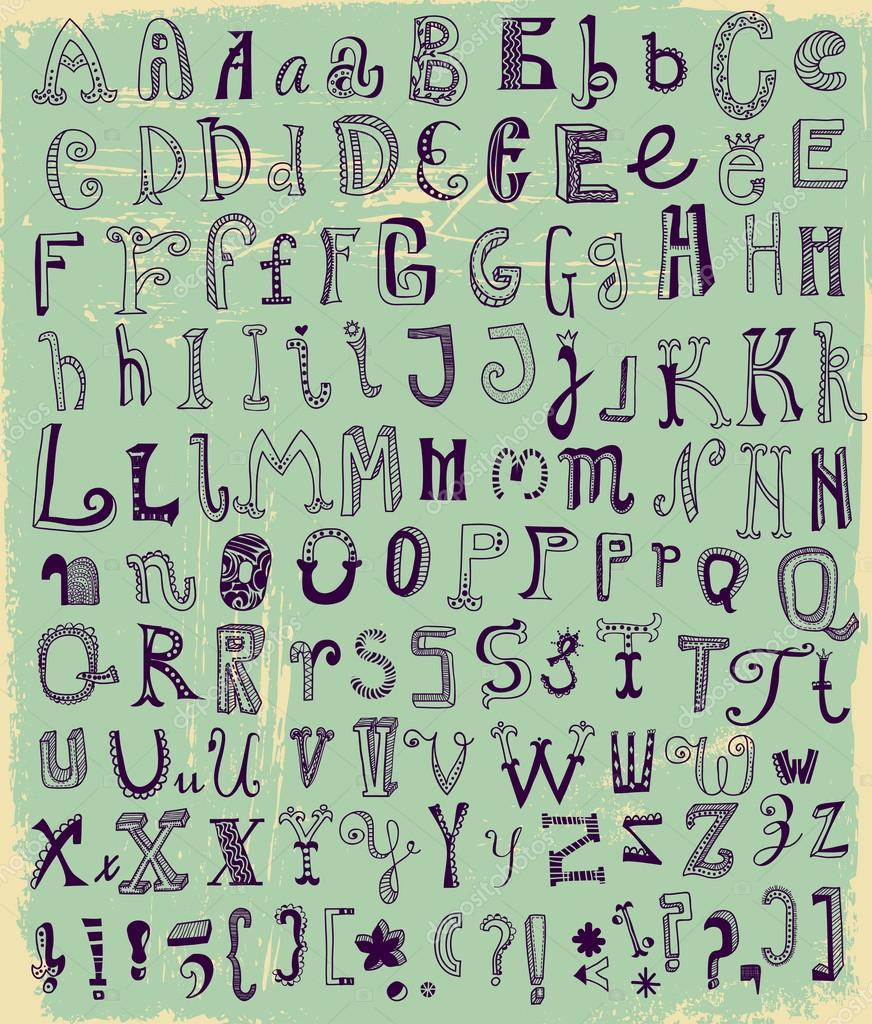 A A A a a B B B b b C C
C D D d D E E E e ë E
F F F f F G G G g H H H
h h I I i i J J j J K K k
L L L M M M m m N N N
n n O O O P P P P P Q Q
Q R R r S S S s T T T t
U U u U V V V W W W w
X x X X Y y Y y Z Z Z Z Z
! ! ! ; { } [ * ( ? ! * ! ? ? , ) ]